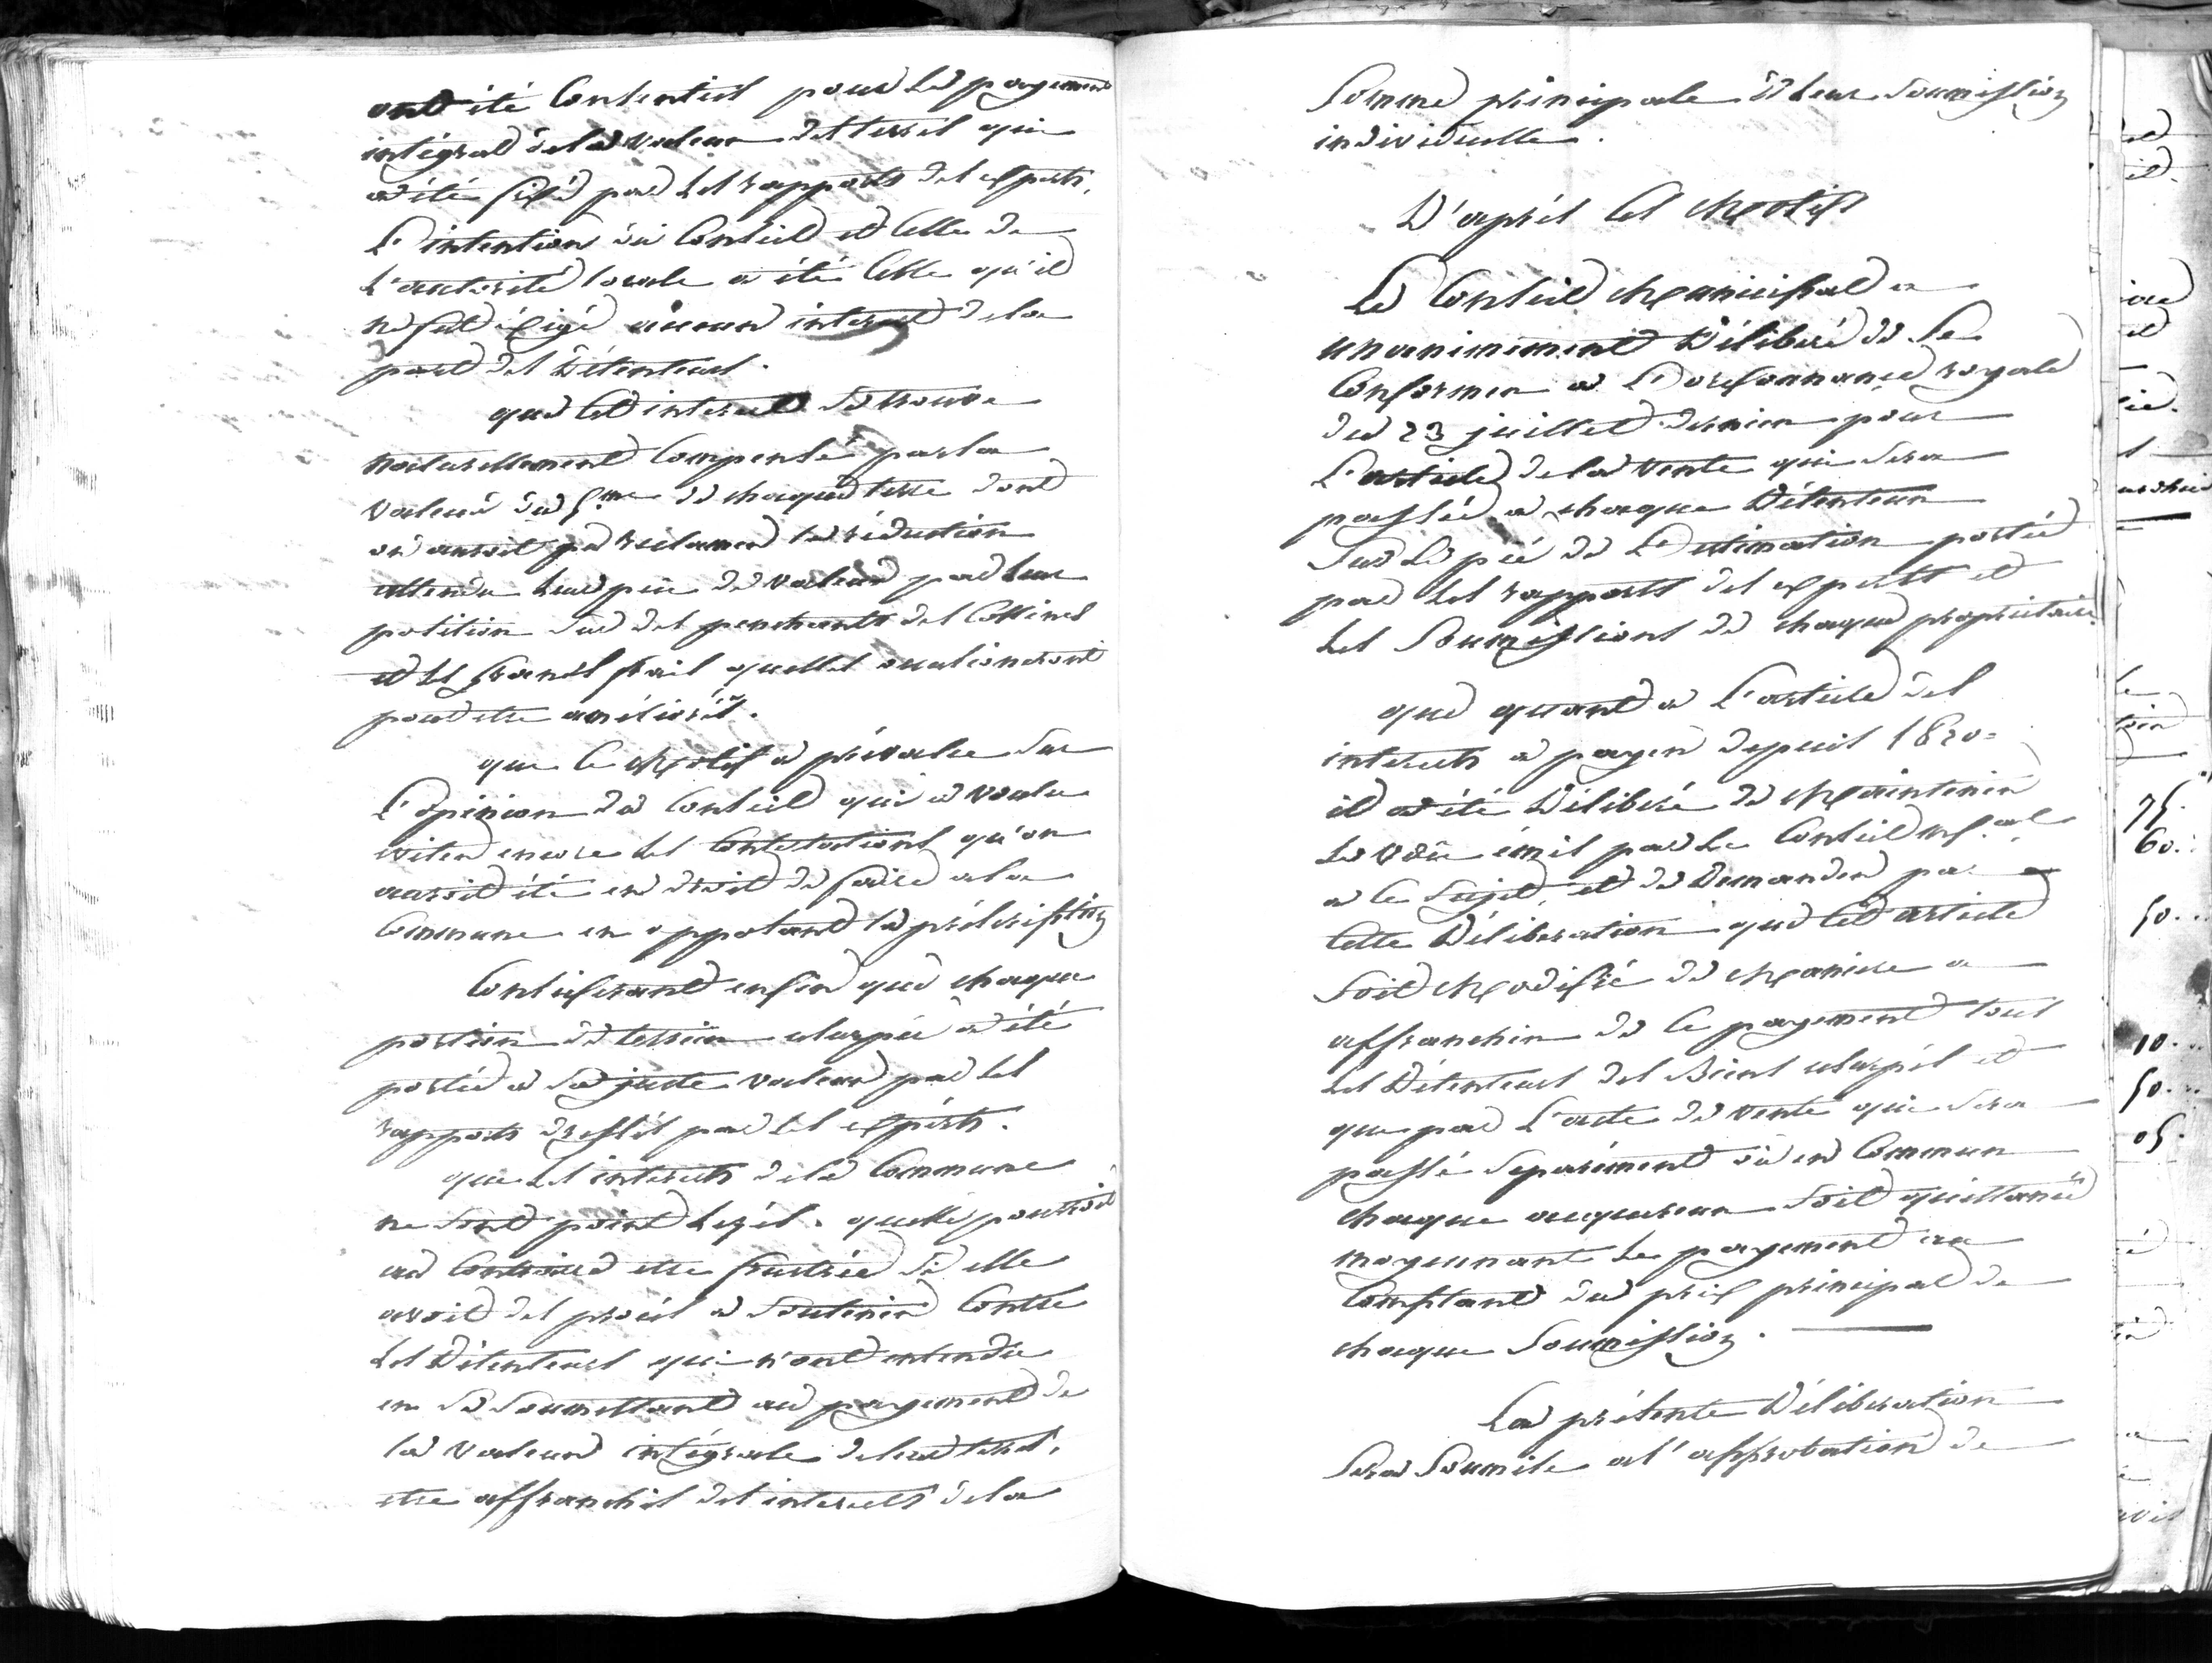 ont été Consenties pour le payement
intégral de la valeur des terres qui
a été fixé par les rapports des experts.
L'intention du Conseil et Celle de
L'autorité locale a été Celle qu'il
ne fut éxigé aucun interest de la
part des Détenteurs.
que Cet interest se trouve
naturellement Compensé par la
valeur du 5.me de chaque terre dont
on auroit pu reclamer la réduction
attendu leur peu de valeur par leur
position sur des penchants des Collines
et les grands frais quelles ocasioneront
pour etre améliorées.
que Ce Motif a prévalu sur
L'opinion du Conseil qui a voulu
eviter encore les Contestations qu'on
auroit été en droit de faire a la
Commune en opposant la préscription
Considerant enfin que chaque
portion de terrein usurpée a été
portée a sa juste valeur par les
rapports dressés par les experts.
que les interets de la Commune
ne sont point lezés. quelle pourroit
au Contraire etre frustrée si elle
avoit des procés a soutenir Contre
les Détenteurs qui n'ont entendu
en se soumettant au payement de
la valeur intégrale de leur terres,
etre affranchis des interests de la
Somme principale de leur soumission
individuelle.
D'aprés Ces Motifs
Le Conseil Municipal a
unanimement Déliberé de se
Conformer a L'ordonnance royale
du 23 juillet dernier pour
L'article de la vente qui sera
passée a chaque Détenteur
sur le pié de L'estimation portée
par les rapports des experts et
les Soumissions de chaque propriétaire.
que quant a L'article des
interets a payer depuis 1820.
il a été Déliberé de Maintenir
le voeu émis par le Conseil M.al
a Ce sujet, et de Demander par
Cette Déliberation que Cet article
soit Modifié de Maniere a
affranchir de Ce payement tous
les Détenteurs des Biens usurpés et
que par L'acte de vente qui sera
passé separément ou en Commun
chaque acquereur soit quittancé
moyennant le payement au
Comptant du prix principal de
chaque Soumission.
La présente Déliberation
sera Soumise a l'approbation de